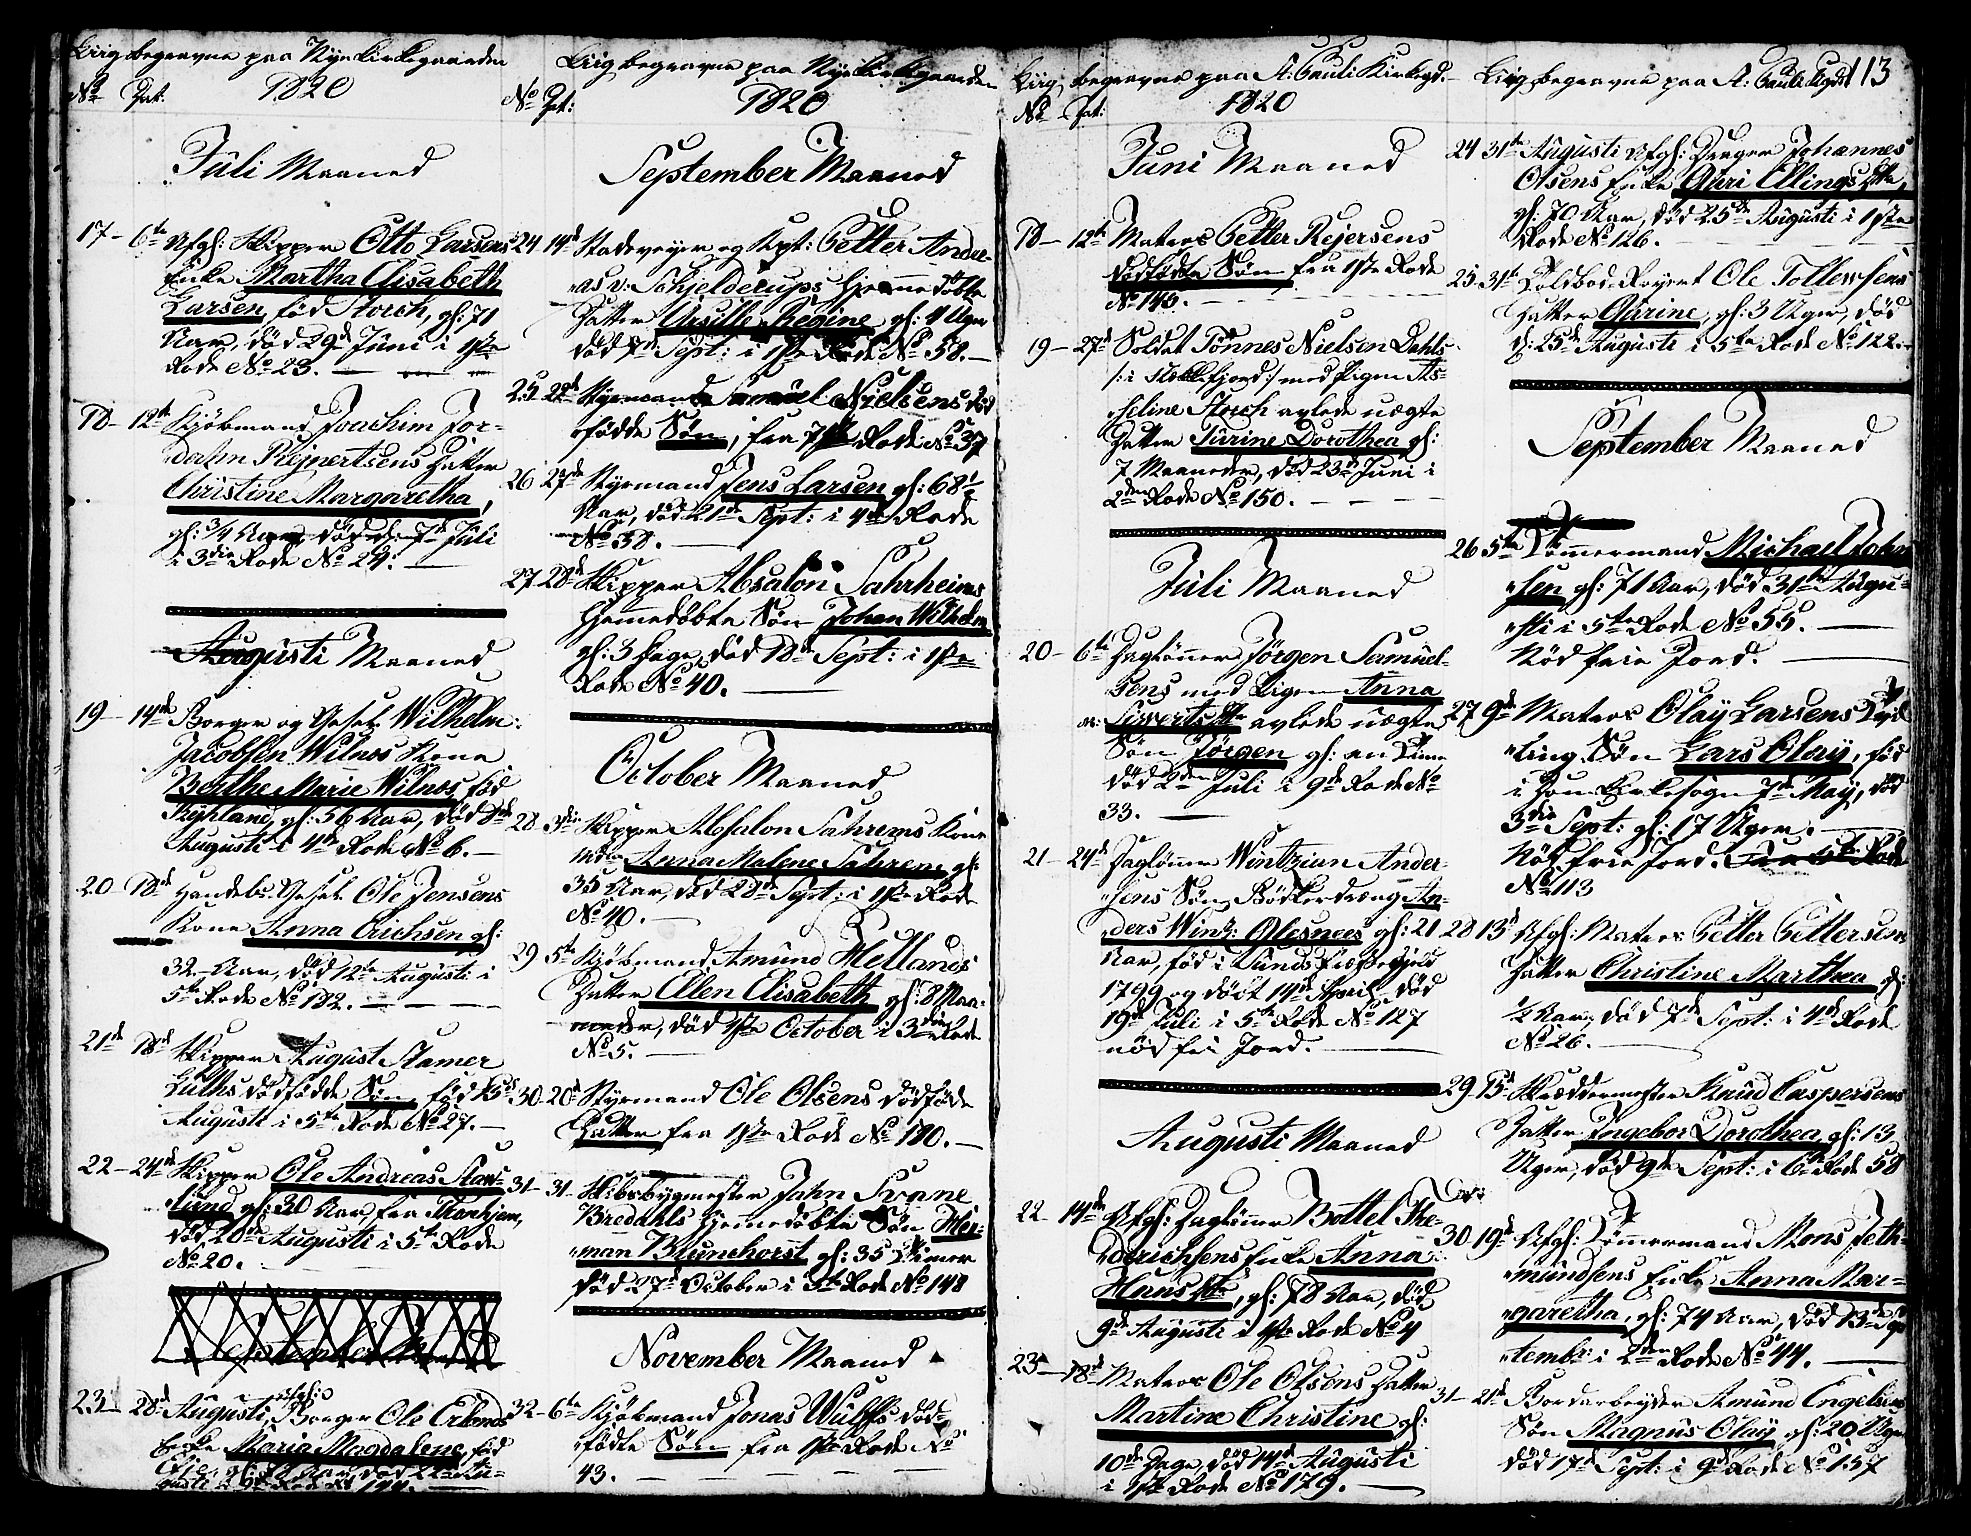 Liig begravne paa Nye Kirkegaarden
No Dat: 1820
Juli Maaned
17 – 6te Afg: Skipper Otto Larsens
Enke Martha Elisabeth
Larsen, fød Storch, gl: 71
Aar, død 29de Juni i 1ste
Rode No 23.
18 – 12te Kjøbmand Joachim Jor-
dahn Rejnertsens Datter
Christine Margaretha,
gl: 3/4 Aar, død d: 7de Juli
i 3die Rode No 24.
Augusti Maaned
19 – 14de Borger og Gesel Wilhelm
Jacobsen Wilnos Kone
Berthe Marie Wilnos fød
Ryhland, gl: 56 Aar, død 8de
Augusti i 4de Rode No 6.
20 – 18de Handels Gesel Ole Jensens
Kone Anna Erichsen gl:
32 Aar, død 12te Augusti i
5te Rode No 132.
21de 18de Skipper August Stamer
Luths dødfødde Søn, fød 15de
Augusti i 5te Rode No 27.
22 – 24de Skipper Ole Andreas Star-
lund gl: 30 Aar, fra Thronhjem,
død 20de Augusti i 5te Rode
No 20.
September
23 – 28de Augusti, afgl: Borger Ole Erlands
Enke Maria Magdalene, fød
gusti i 9de Rode No
Liig begravne paa Nye Kirkegaarden
No Dat: 1820
September Maaned
24 14de Stadsvejer og Kpt: Petter Andre-
as v: Schjelderups hjemmedøbte
Datter Ursille Regine gl: 4 Uger
død 7de Sept: i 1ste Rode No 58.
25 22de Styrmand Samuel Nielsens død
fødde Søn, fra 7de Rode No 37
26 27de Styrmand Jens Larsen gl: 68 1/2
Aar, død 21de Sept: i 4de Rode
No 38.
27 28de Skipper Absalon Sahrheims
hjemmedøbte Søn Johan Wilhelm
gl: 3 Dage, død 18de Sept: i 1ste
Rode No 40.
October Maaned
28 3die Skipper Absalon Sahrems Kone
Anna Malene Sahrem gl:
35 Aar, død 28de Sept: i 1ste Rode
No 40.
29 5te Kjøbmand Amund Hellands
Datter Ellen Elisabeth gl: 8 Maa-
neder, død 1ste October i 3die Rode
No 5.
30 – 20de Styrmand Ole Olsens dødfødde
Datter fra 1ste Rode No 180.
31 – 31 Skibsbygmester Jahn Svane
Bredahls hjemmedøbte Søn Her-
man Brunchorst gl: 35 Timer
død 27de October i 5te Rode No 148
November Maaned
32 – 6te Kjøbmand Jonas Wulffs død-
fødte Søn fra 1ste Rode No
43.
Liig begravne paa St: Pauli Kirkegd.
No Dat: 1820
Juni Maaned
18 – 12te Matros Petter Rejersens
dødfødte Søn fra 1ste Rode
No 145.
19 – 27de Soldat Tønnes Nielsen Dahls
med Pigen As-
seline Storch avlede uægte
Datter Turine Dorothea gl:
7 Maaneder, død 23de Juni i
2den Rode No 150.
Juli Maaned
20 – 6te Daglønner Jørgen Samuel-
sens med Pigen Anna
Siverts Dtr avlede uægte
Søn Jørgen gl: en Time
død 2den Juli i 9de Rode No
33.
21 – 24de Daglønner Wintzian Ander-
sens Søn, Bødkerdreng An-
ders Wintz: Olesnees gl: 21
Aar, fød i Lunds Præstegield
1799 og døbt 14de April, død
19de Juli i 5te Rode No 127
nød frie Jord.
Augusti Maaned
22 – 14de Afgl: Daglønner Bottel The-
derichsens Enke Anna
Hans Dtr, gl: 78 Aar, død
9de Augusti i 1ste Rode No 4
23 – 18de Matros Ole Olsens Datter
Martine Christine gl:
10 Dage, død 14de Augusti
i 1ste Rode No 179.
Liig begravne paa St: Pauli Kigd: 113
24 31te Augusti Afgl: Drager Johannes
Olsens Enke Guri Ellings Dtr,
gl: 70 Aar, død 25de Augusti i 1ste
Rode No 126.
25 31te Toldbod Rojert Ole Tollewsens
Datter Gurine, gl: 3 Uger, død
d: 25de Augusti i 5te Rode No 122.
September Maaned
26 5te Tømmermand Michael John
sen gl: 71 Aar, død 31te Augu-
sti i 5te Rode No 55.
Nød frie Jord.
27 9de Matros Olay Larsens
Søn Lars Olay, fød
i Kirkesogn 7de May, død
3die Sept: gl: 17 Uger.
Nød frie Jord.
No 113
28 13de Afgl: Matros Petter Pettersens
Datter Christine Marthea gl:
1/2 Aar, død 7de Sept: i 4de Rode
No 26.
29 15de Skræddermester Knud Caspersens
Datter Ingebor Dorothea, gl: 13
Uger, død 9de Sept: i 6te Rode 58
30 19de Afgl: Tømmermand Mons Jeth-
mundsens Enke Anna Mar-
garetha, gl: 74 Aar, død 13de Sep
tembr: i 2den Rode No 44.
31 – 21de Bordarbejder Amund Engelsens
Søn Magnus Olay, gl: 20 Uger
død 17de Sept: i 9de Rode No 157